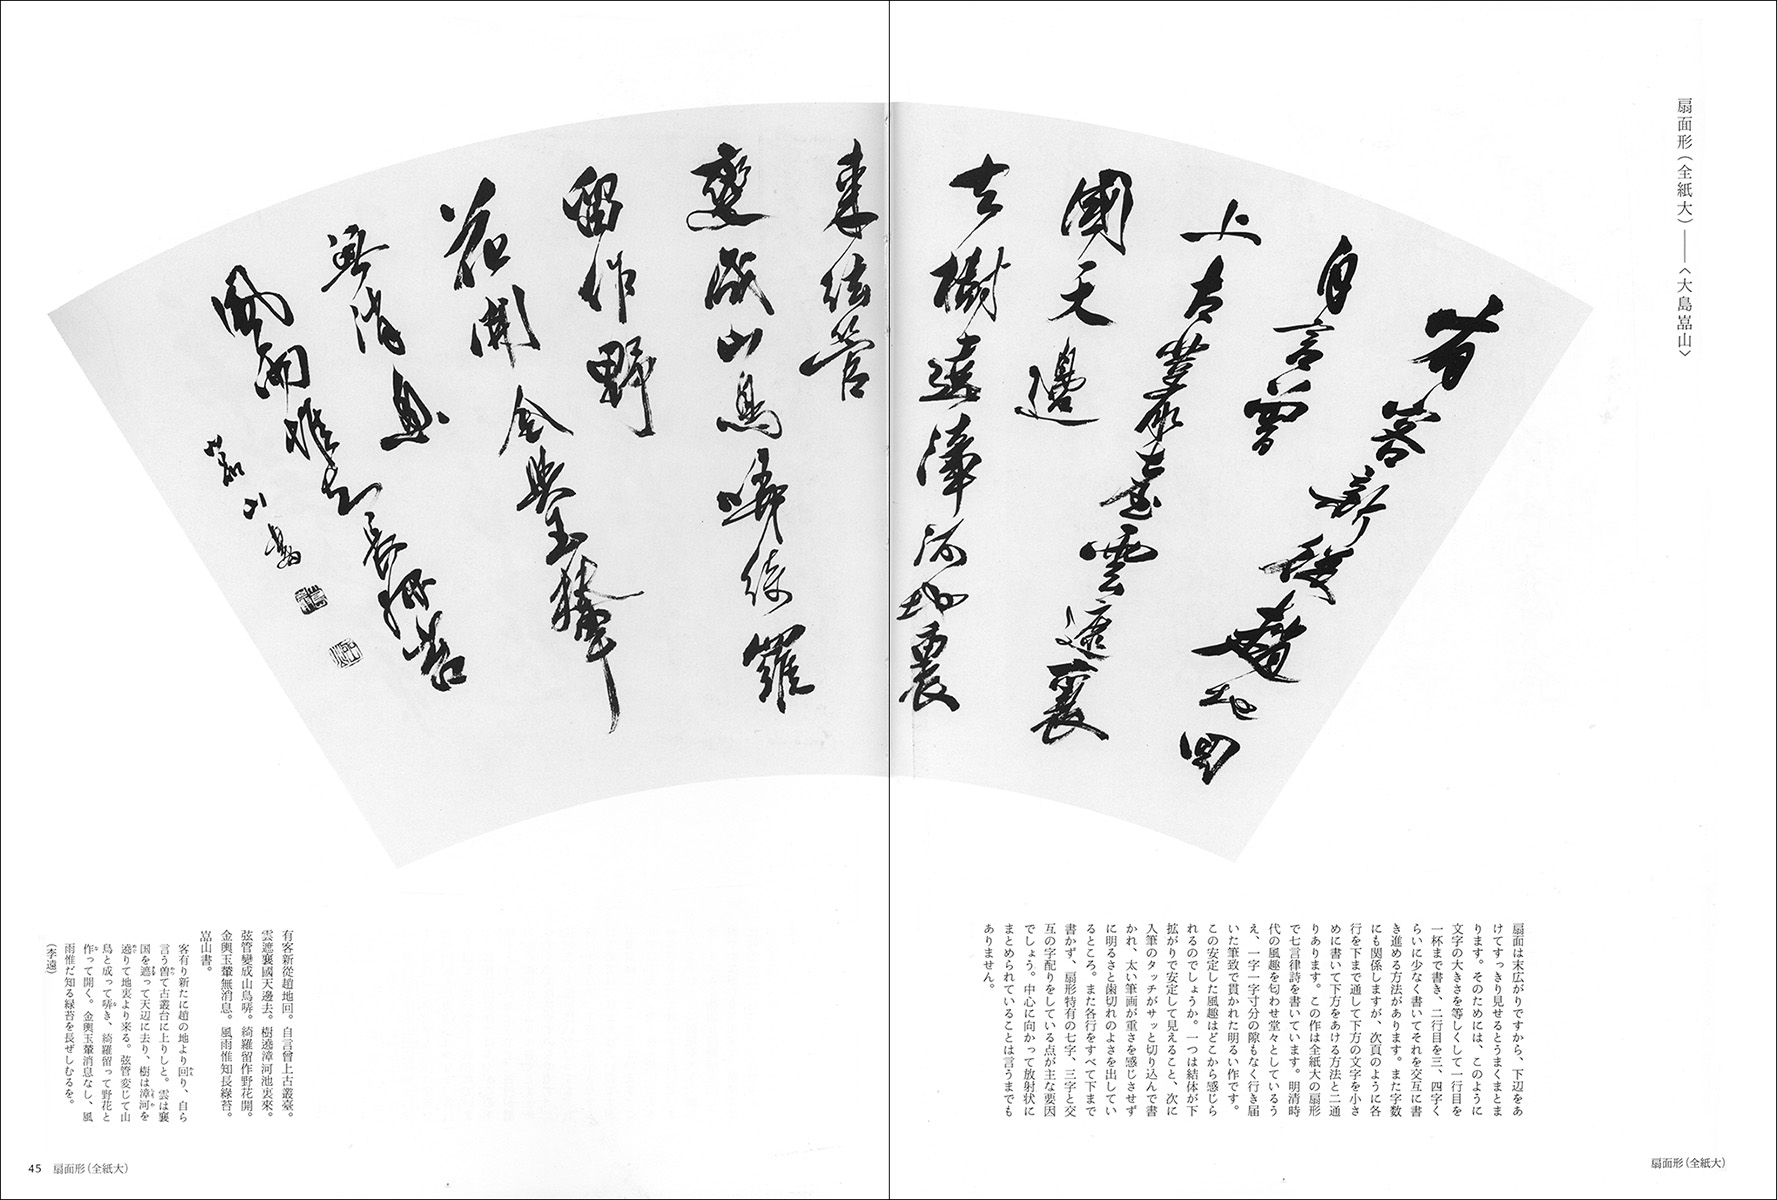 扇面形（全紙大）——〈大島嵓山〉
有客新從趙地回
自言曾
上古叢臺雲遮襄
國天邊
去樹遶漳河地裏
來弦管
變成山鳥哢綺羅
留作野
花開金輿玉輦
無消息
風雨惟知長綠苔
嵓山書
扇面は末広がりですから、下辺をあ
けてすっきり見せるとうまくまとま
ります。そのためには、このように
文字の大きさを等しくして一行目を
一杯まで書き、二行目を三、四字く
らいに少なく書いてそれを交互に書
き進める方法があります。また字数
にも関係しますが、次頁のように各
行を下まで通して下方の文字を小さ
めに書いて下方をあける方法と二通
りあります。この作は全紙大の扇形
で七言律詩を書いています。明清時
代の風趣を匂わせ堂々としているう
え、一字一字寸分の隙もなく行き届
いた筆致で貫かれた明るい作です。
この安定した風趣はどこから感じら
れるのでしょうか。一つは結体が下
拡がりで安定して見えること、次に
入筆のタッチがサッと切り込んで書
かれ、太い筆画が重さを感じさせず
に明るさと歯切れのよさを出してい
るところ。また各行をすべて下まで
書かず、扇形特有の七字、三字と交
互の字配りをしている点が主な要因
でしょう。中心に向かって放射状に
まとめられていることは言うまでも
ありません。
有客新從趙地回。自言曾上古叢臺。
雲遮襄國天邊去。樹遶漳河池裏來。
弦管變成山鳥哢。綺羅留作野花開。
金輿玉輦無消息。風雨惟知長綠苔。
嵓山書。
客有り新たに趙の地より回り、自ら
言う曽て古叢台に上りしと。雲は襄
国を遮って天辺に去り、樹は漳河を
遶りて地裏より来る。弦管変じて山
鳥と成って哢き、綺羅留って野花と
作って開く。金輿玉輦消息なし、風
雨惟だ知る緑苔を長ぜしむるを。
（李遠）
45 扇面形（全紙大）
扇面形（全紙大）